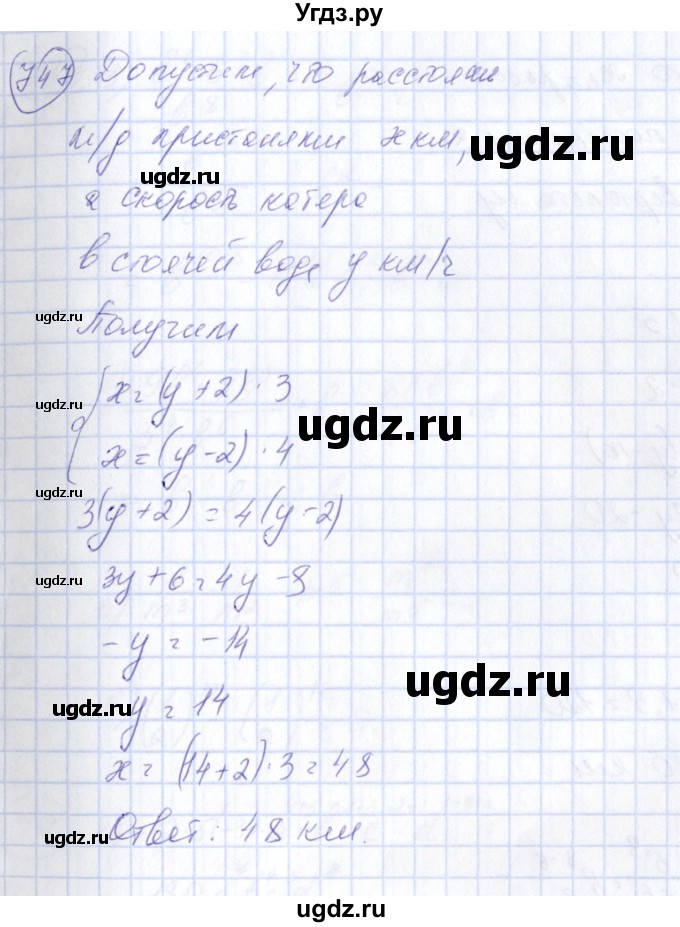 Угдз.ру
747 Допустим, что расстояни
м/д пристанями x км,
ugdz.ru
а скорость катера
в стоячей воде y км/ч
ugdz.ru
Получим
x = (y + 2) · 3
ugdz.ru
x = (y - 2) · 4
ugdz.ru
3(y + 2) = 4(y - 2)
ugdz.ru
3y + 6 = 4y - 8
- y = - 14
ugdz.ru
ugdz.ru
y = 14
x = (14 + 2) · 3 = 48
ugdz.ru
Ответ: 48 км.
ugdz.ru